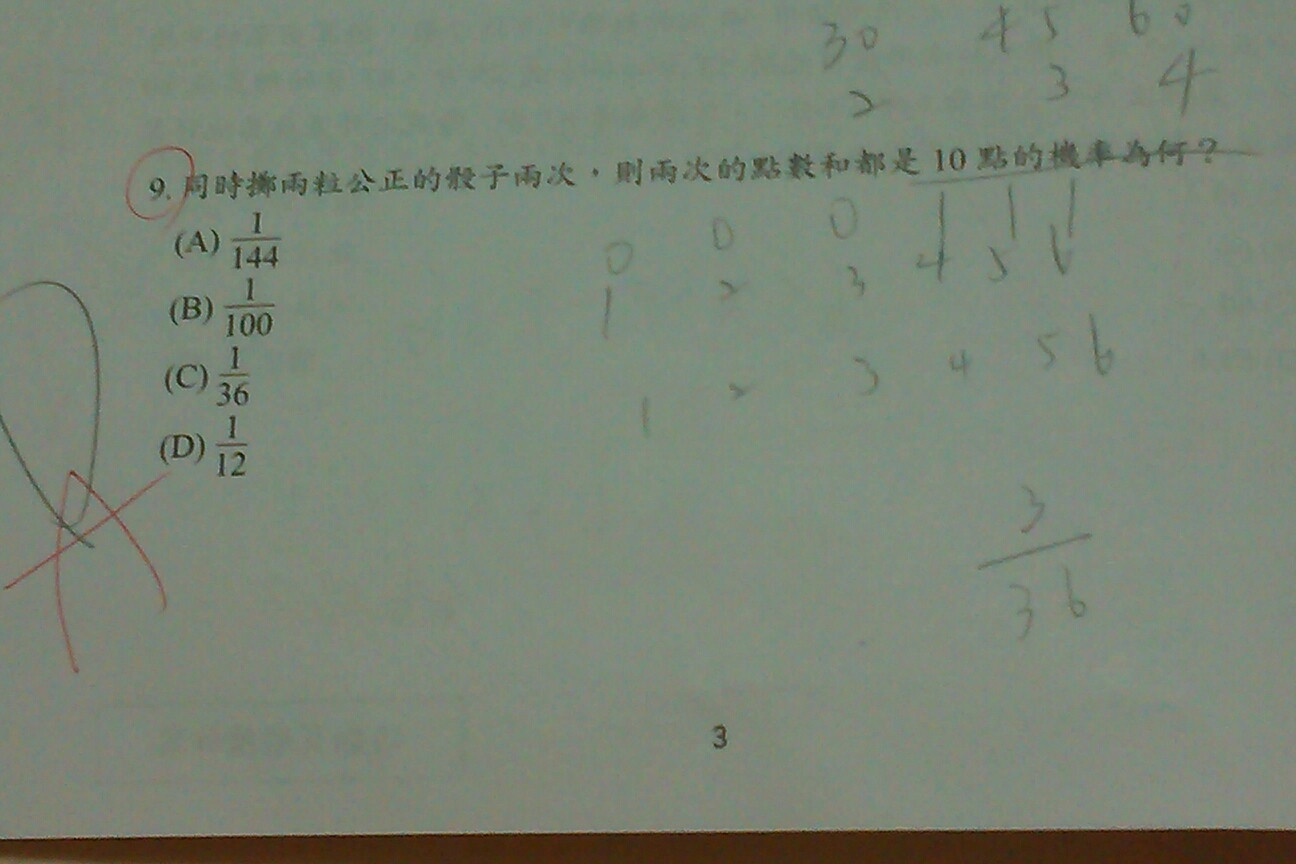 30 45 60
2 3 4
9. 同時擲兩粒公正的骰子兩次，則兩次的點數和都是 10 點的機率為何？
(A) 1/144
(B) 1/100
(C) 1/36
(D) 1/12
0 0 0 1 1 1
1 2 3 4 5 6
1 2 3 4 5 6
3/36
3